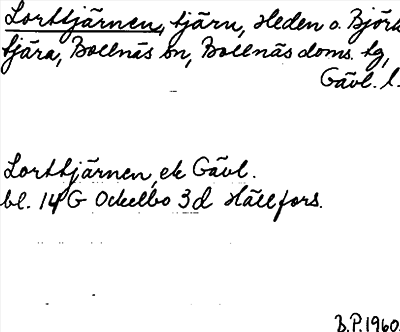 Lorttjärnen, tjärn, Heden o. Björk
tjära, Bollnäs sn, Bollnäs doms. tg,
Gävl. l.
Lorttjärnen, ek Gävl.
bl. 14 G Ockelbo 3d Hällfors.
B.P. 1960.